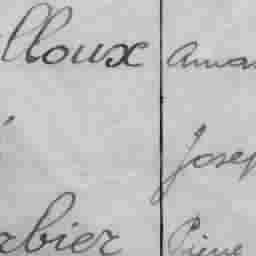 lloux Aman
Josep
rbier Pierre